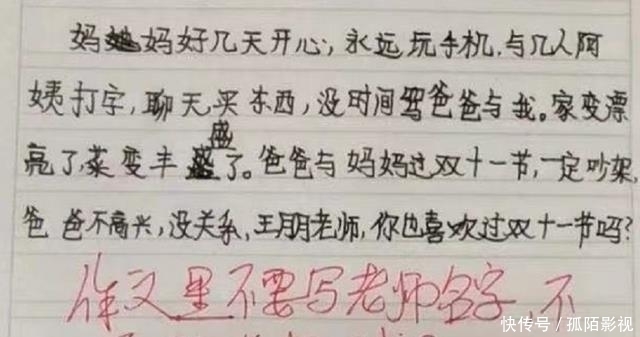 妈妈好几天开心,永远玩手机,与几人阿
姨打字,聊天买东西,没时间骂爸爸与我。家变漂
亮了,菜变丰盛了。爸爸与妈妈过双十一节,一定吵架,
爸爸不高兴,没关系,王朋老师,你也喜欢过双十一节吗?
作文里不要写老师名字,不
快传号/孤陌影视